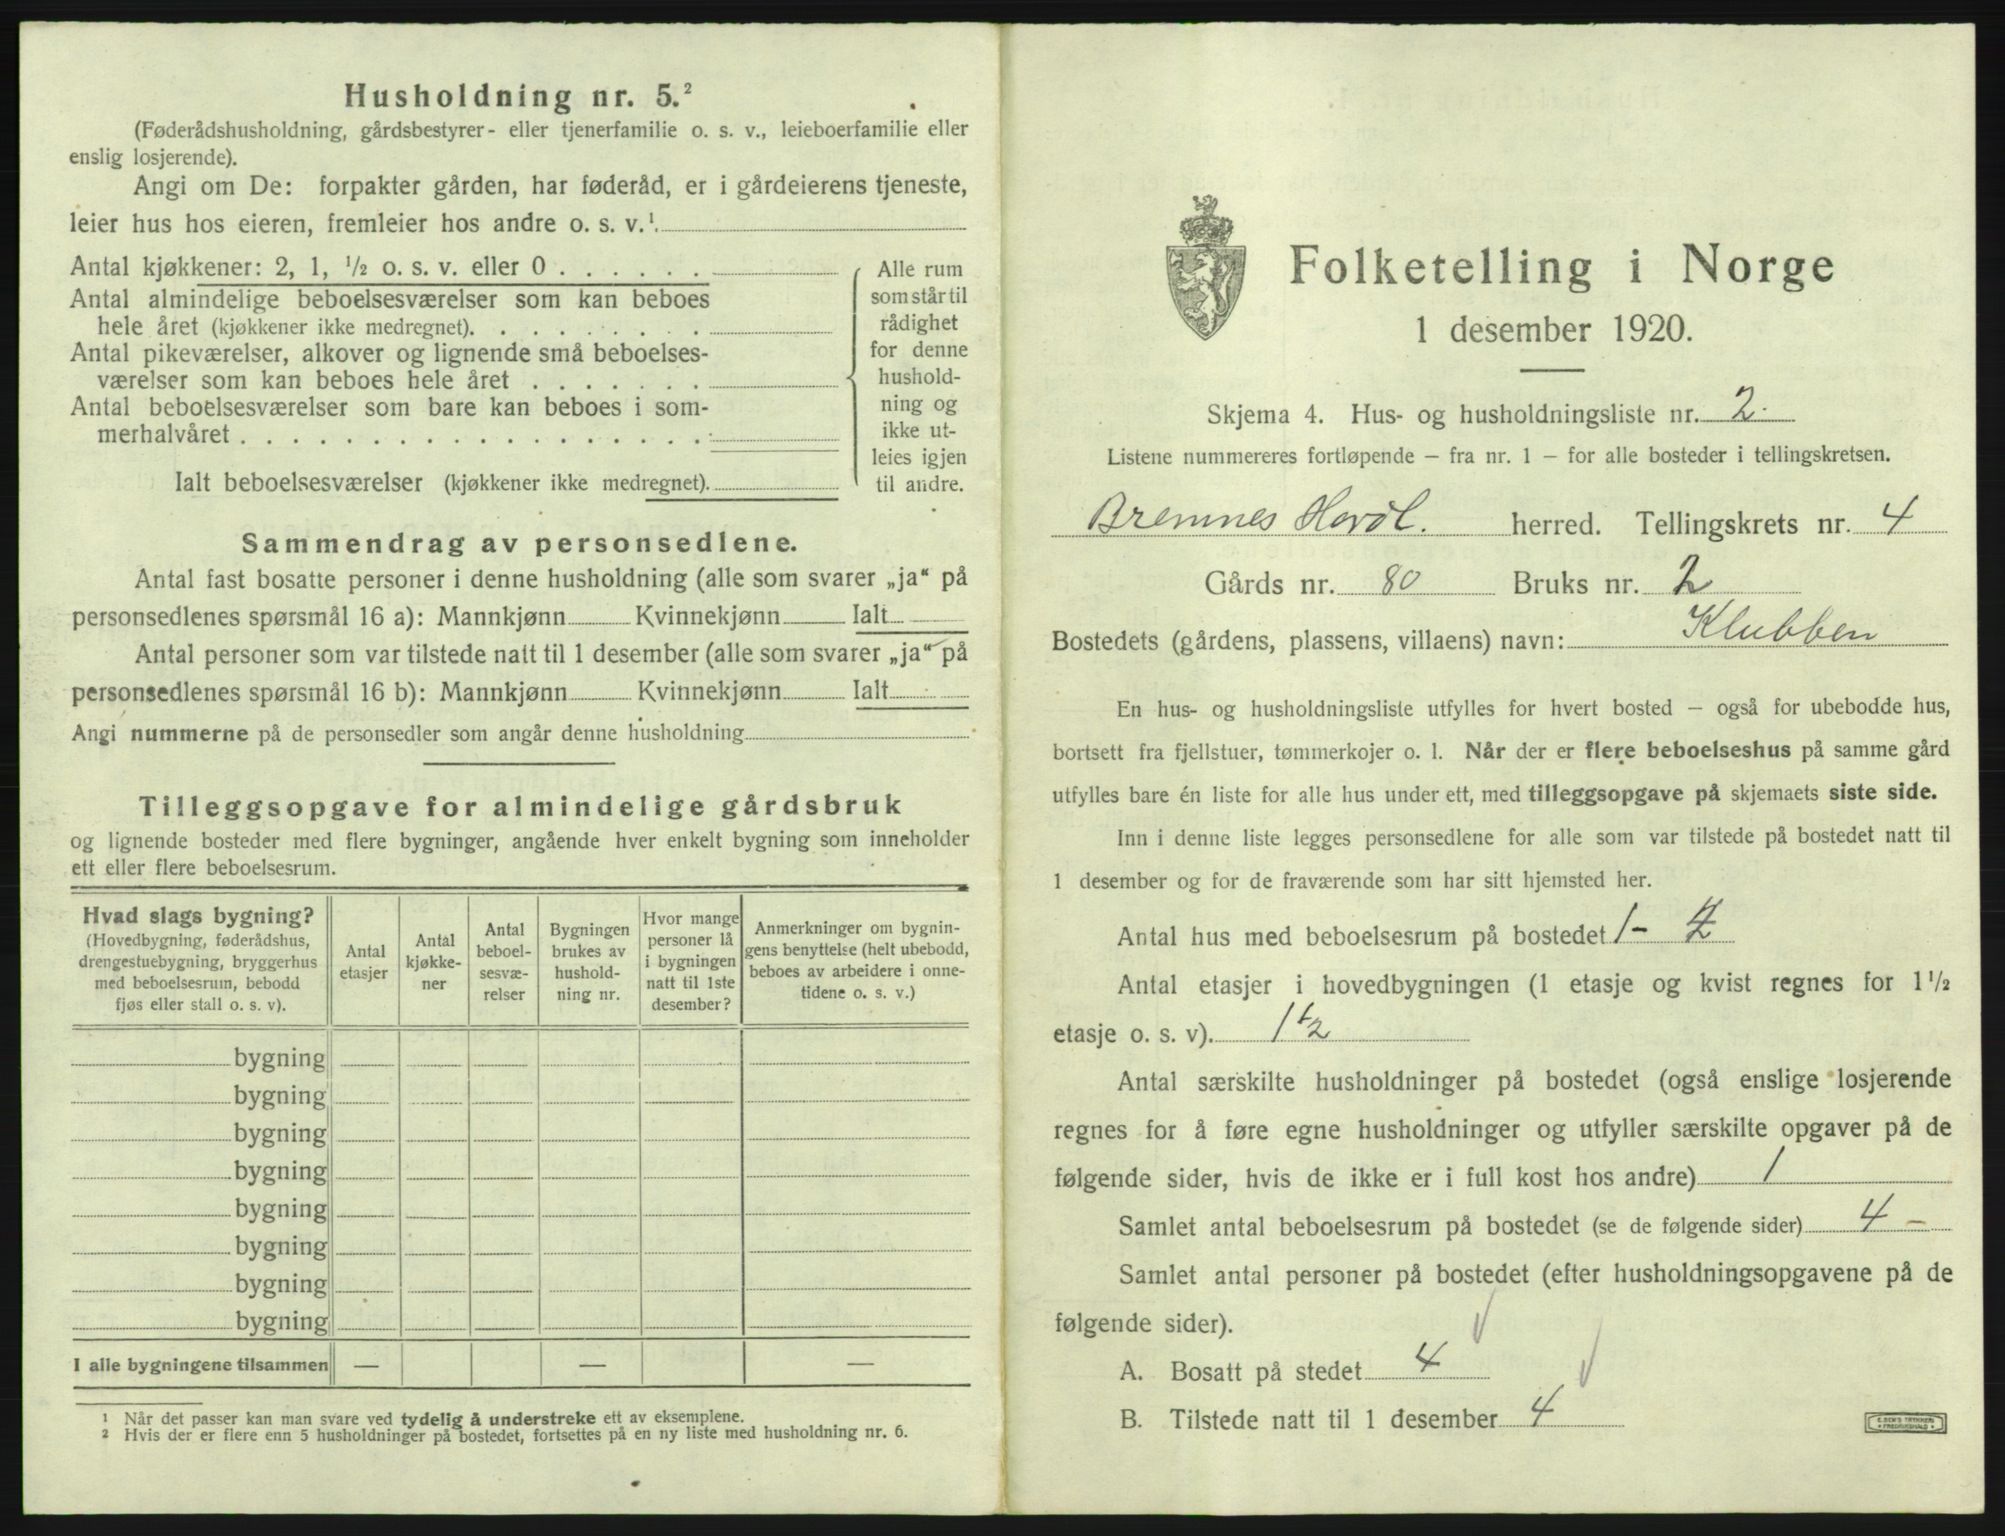 Husholdning nr. 5.²
(Føderådshusholdning, gårdsbestyrer- eller tjenerfamilie o. s. v., leieboerfamilie eller
enslig losjerende).
Angi om De: forpakter gården, har føderåd, er i gårdeierens tjeneste,
leier hus hos eieren, fremleier hos andre o. s. v.¹.
Antal kjøkkener: 2, 1, ½ o. s. v. eller 0 . . . . . .
Antal almindelige beboelsesværelser som kan beboes
hele året (kjøkkener ikke medregnet). . . . . . . . .
Antal pikeværelser, alkover og lignende små beboelses-
værelser som kan beboes hele året . . . . . . .
Antal beboelsesværelser som bare kan beboes i som-
merhalvåret . . . . . . . . . . . . . . . . . .
Ialt beboelsesværelser (kjøkkener ikke medregnet).
Alle rum
som står til
rådighet
for denne
hushold-
ning og
ikke ut-
leies igjen
til andre.
Sammendrag av personsedlene.
Antal fast bosatte personer i denne husholdning (alle som svarer „ja“ på
personsedlenes spørsmål 16 a): Mannkjønn Kvinnekjønn Ialt
Antal personer som var tilstede natt til 1 desember (alle som svarer „ja“ på
personsedlenes spørsmål 16 b): Mannkjønn Kvinnekjønn Ialt
Angi nummerne på de personsedler som angår denne husholdning
Tilleggsopgave for almindelige gårdsbruk
og lignende bosteder med flere bygninger, angående hver enkelt bygning som inneholder
ett eller flere beboelsesrum.
Hvad slags bygning?
(Hovedbygning, føderådshus,
drengestuebygning, bryggerhus
med beboelsesrum, bebodd
fjøs eller stall o. s. v).
Antal
etasjer
Antal
kjøkke-
ner
Antal
beboel-
sesvæ-
relser
Bygningen
brukes av
hushold-
ning nr.
Hvor mange
personer lå
i bygningen
natt til 1ste
desember?
Anmerkninger om bygnin-
gens benyttelse (helt ubebodd,
beboes av arbeidere i onne-
tidene o. s. v.)
bygning
bygning
bygning
bygning
bygning
bygning
bygning
bygning
I alle bygningene tilsammen — — —
¹ Når det passer kan man svare ved tydelig å understreke ett av eksemplene.
² Hvis der er flere enn 5 husholdninger på bostedet, fortsettes på en ny liste med husholdning nr. 6.
Folketelling i Norge
1 desember 1920.
Skjema 4. Hus- og husholdningsliste nr. 2.
Listene nummereres fortløpende – fra nr. 1 – for alle bosteder i tellingskretsen.
Bremnes Hordl. herred. Tellingskrets nr. 4
Gårds nr. 80 Bruks nr. 2
Bostedets (gårdens, plassens, villaens) navn: Klubben
En hus- og husholdningsliste utfylles for hvert bosted – også for ubebodde hus,
bortsett fra fjellstuer, tømmerkojer o. l. Når der er flere beboelseshus på samme gård
utfylles bare én liste for alle hus under ett, med tilleggsopgave på skjemaets siste side.
Inn i denne liste legges personsedlene for alle som var tilstede på bostedet natt til
1 desember og for de fraværende som har sitt hjemsted her.
Antal hus med beboelsesrum på bostedet 1 –
Antal etasjer i hovedbygningen (1 etasje og kvist regnes for 1½
etasje o. s. v). 1½
Antal særskilte husholdninger på bostedet (også enslige losjerende
regnes for å føre egne husholdninger og utfyller særskilte opgaver på de
følgende sider, hvis de ikke er i full kost hos andre) 1
Samlet antal beboelsesrum på bostedet (se de følgende sider) 4 –
Samlet antal personer på bostedet (efter husholdningsopgavene på de
følgende sider).
A. Bosatt på stedet 4
B. Tilstede natt til 1 desember 4